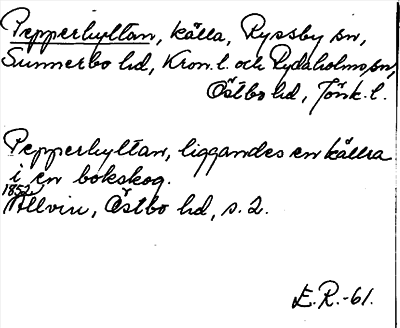 Pepperhyltan, källa, Ryssby sn,
Sunnerbo hd, Kron. l. och Rydaholms sn,
Östbo hd, Jönk. l.
Pepperhyltan, liggandes en källra
i en bokskog.
1852
Allvin, Östbo hd, s. 2.
E.R.-61.